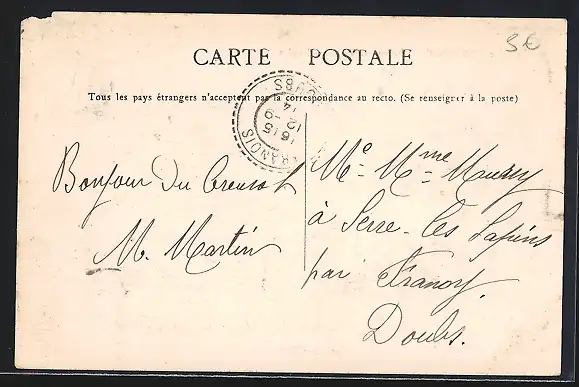 5€
CARTE POSTALE
Tous les pays étrangers n'acceptent pas la correspondance au recto. (Se renseigner à la poste)
16 15
12 -9
14
FRANOIS
DOUBS
Bonjour du Creusot
M. Martin
Me = Mme =
à Serre-les Sapins
par Franoy.
Doubs.